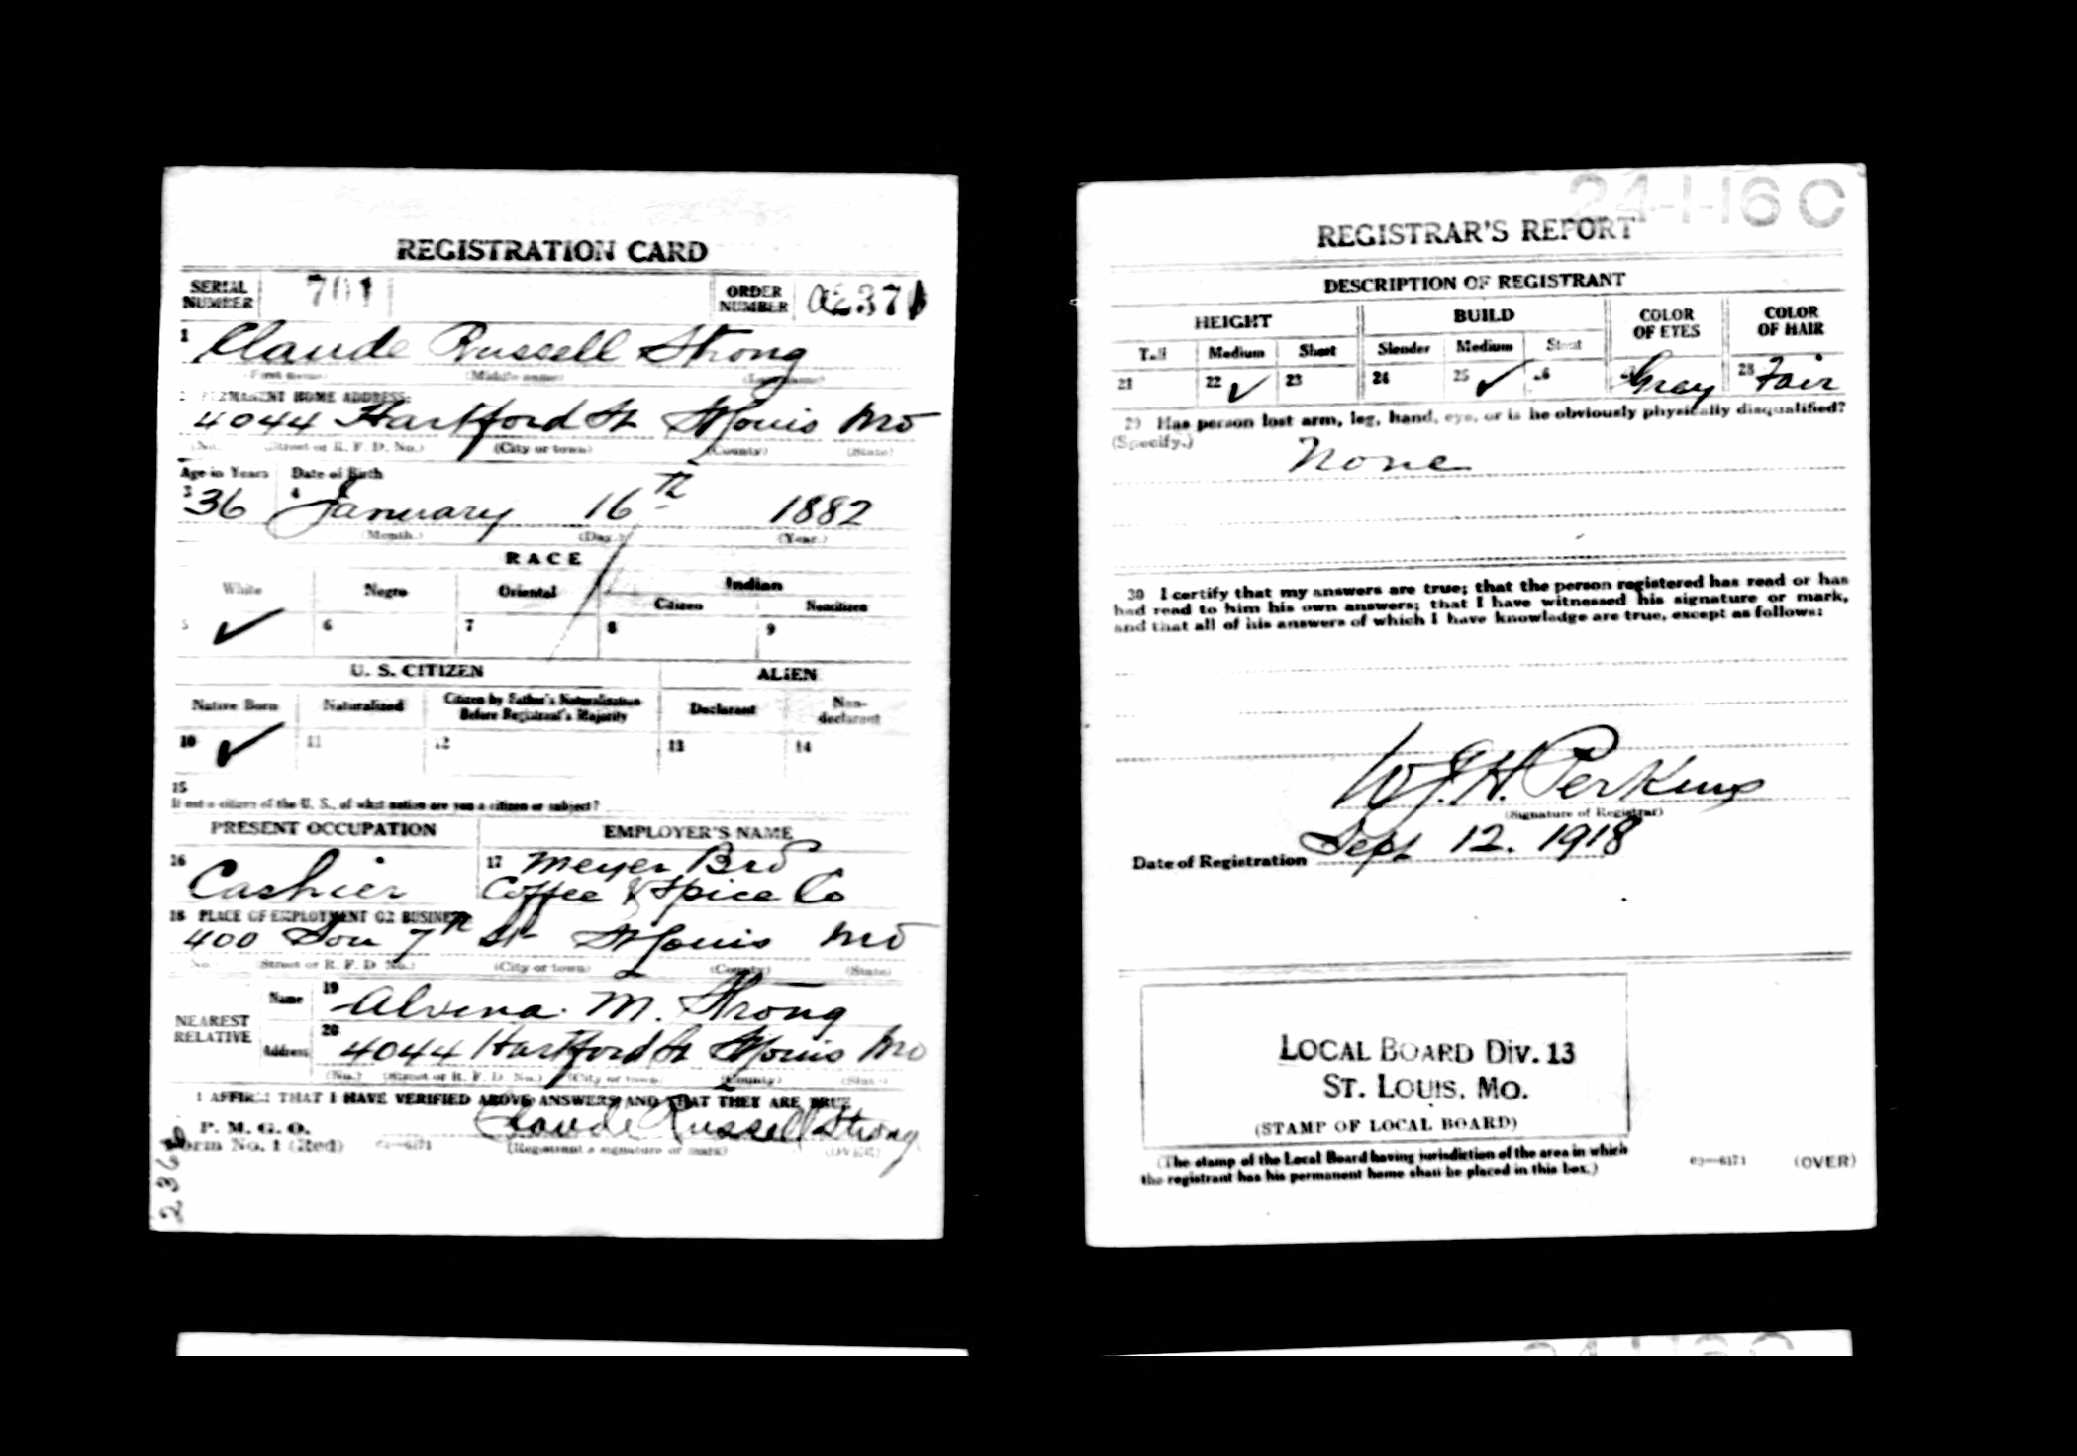 REGISTRATION CARD
SERIAL NUMBER 701 ORDER NUMBER
1 Claude Russell Strong
(First name) (Middle name) (Last name)
2 PERMANENT HOME ADDRESS:
4044 Hartford St St Louis Mo
(No.) (Street or R. F. D. No.) (City or town) (County) (State)
Age in Years Date of Birth
3 36 4 January 16th 1882
(Month.) (Day.) (Year.)
RACE
White Negro Oriental Indian
Citizen Noncitizen
5 ✓ 6 7 8 9
U. S. CITIZEN ALIEN
Native Born Naturalized Citizen by Father's Naturalization Before Registrant's Majority Declarant Non-declarant
10 ✓ 11 12 13 14
15
If not a citizen of the U. S., of what nation are you a citizen or subject?
PRESENT OCCUPATION EMPLOYER'S NAME
16 Cashier 17 Meyer Bro
Coffee & Spice Co
18 PLACE OF EMPLOYMENT OR BUSINESS:
400 Sou 7th St St Louis Mo
(No.) (Street or R. F. D. No.) (City or town) (County) (State)
NEAREST RELATIVE
Name 19 Alvena M. Strong
Address 20 4044 Hartford St St Louis Mo
(No.) (Street or R. F. D. No.) (City or town) (County) (State)
I AFFIRM THAT I HAVE VERIFIED ABOVE ANSWERS AND THAT THEY ARE TRUE
P. M. G. O.
Form No. 1 (Red) 03—6171 Claude Russell Strong
(Registrant's signature or mark) (OVER)
24-1-16 C
REGISTRAR'S REPORT
DESCRIPTION OF REGISTRANT
HEIGHT BUILD COLOR OF EYES COLOR OF HAIR
Tall Medium Short Slender Medium Stout
21 22 ✓ 23 24 25 ✓ 26 27 Gray 28 Fair
29 Has person lost arm, leg, hand, eye, or is he obviously physically disqualified?
(Specify.) None
30 I certify that my answers are true; that the person registered has read or has
had read to him his own answers; that I have witnessed his signature or mark,
and that all of his answers of which I have knowledge are true, except as follows:
W.J.H. Perkins
(Signature of Registrar)
Date of Registration Sept 12. 1918
LOCAL BOARD Div. 13
ST. LOUIS, MO.
(STAMP OF LOCAL BOARD)
(The stamp of the Local Board having jurisdiction of the area in which
the registrant has his permanent home shall be placed in this box.)
03—6171 (OVER)